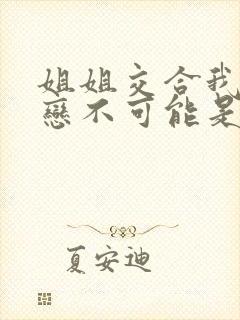 姐姐交合我
戀不可能是
夏安迪